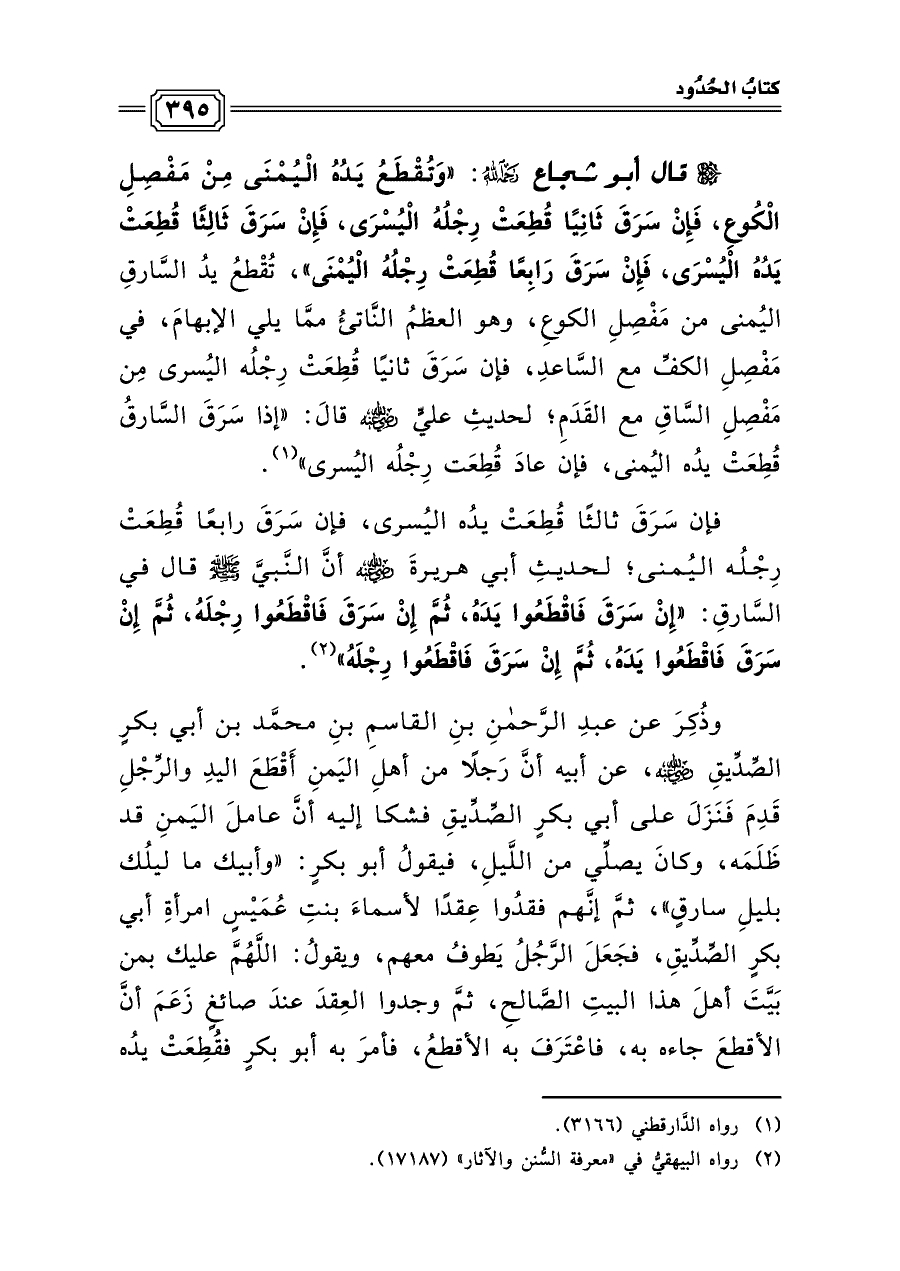 كتابُ الحُدُود
٣٩٥
قال أبو شجاع رَحِمَهُ ٱللَّهُ: «وَتُقْطَعُ يَدُهُ الْيُمْنَى مِنْ مَفْصِلِ
الْكُوعِ، فَإِنْ سَرَقَ ثَانِيًا قُطِعَتْ رِجْلُهُ الْيُسْرَى، فَإِنْ سَرَقَ ثَالِثًا قُطِعَتْ
يَدُهُ الْيُسْرَى، فَإِنْ سَرَقَ رَابِعًا قُطِعَتْ رِجْلُهُ الْيُمْنَى»، تُقْطعُ يدُ السَّارقِ
اليُمنى من مَفْصِلِ الكوعِ، وهو العظمُ النَّاتئُ ممَّا يلي الإبهامَ، في
مَفْصِلِ الكفِّ مع السَّاعدِ، فإن سَرَقَ ثانيًا قُطِعَتْ رِجْلُه اليُسرى مِن
مَفْصِلِ السَّاقِ مع القَدَمِ؛ لحديثِ عليٍّ رضي الله عنه قالَ: «إذا سَرَقَ السَّارقُ
قُطِعَتْ يدُه اليُمنى، فإن عادَ قُطِعَت رِجْلُه اليُسرى»(١).
فإن سَرَقَ ثالثًا قُطِعَتْ يدُه اليُسرى، فإن سَرَقَ رابعًا قُطِعَتْ
رِجْلُه اليُمنى؛ لحديثِ أبي هريرةَ رضي الله عنه أنَّ النَّبيَّ ﷺ قال في
السَّارقِ: «إِنْ سَرَقَ فَاقْطَعُوا يَدَهُ، ثُمَّ إِنْ سَرَقَ فَاقْطَعُوا رِجْلَهُ، ثُمَّ إِنْ
سَرَقَ فَاقْطَعُوا يَدَهُ، ثُمَّ إِنْ سَرَقَ فَاقْطَعُوا رِجْلَهُ»(٢).
وذُكِرَ عن عبدِ الرَّحمٰنِ بنِ القاسمِ بنِ محمَّد بن أبي بكرٍ
الصِّدِّيقِ رضي الله عنه، عن أبيه أنَّ رَجلًا من أهلِ اليَمنِ أَقْطَعَ اليدِ والرِّجْلِ
قَدِمَ فَنَزَلَ على أبي بكرٍ الصِّدِّيقِ فشكا إليه أنَّ عاملَ اليَمنِ قد
ظَلَمَه، وكانَ يصلِّي من اللَّيلِ، فيقولُ أبو بكرٍ: «وأبيك ما ليلُك
بليلِ سارقٍ»، ثمَّ إنَّهم فقدُوا عِقدًا لأسماءَ بنتِ عُمَيْسٍ امرأةِ أبي
بكرٍ الصِّدِّيقِ، فجَعَلَ الرَّجُلُ يَطوفُ معهم، ويقولُ: اللَّهُمَّ عليك بمن
بَيَّتَ أهلَ هذا البيتِ الصَّالحِ، ثمَّ وجدوا العِقدَ عندَ صائغٍ زَعَمَ أنَّ
الأقطعَ جاءه به، فاعْتَرَفَ به الأقطعُ، فأمرَ به أبو بكرٍ فقُطِعَتْ يدُه
(١) رواه الدَّارقطني (٣١٦٦).
(٢) رواه البيهقيُّ في «معرفة السُّنن والآثار» (١٧١٨٧).